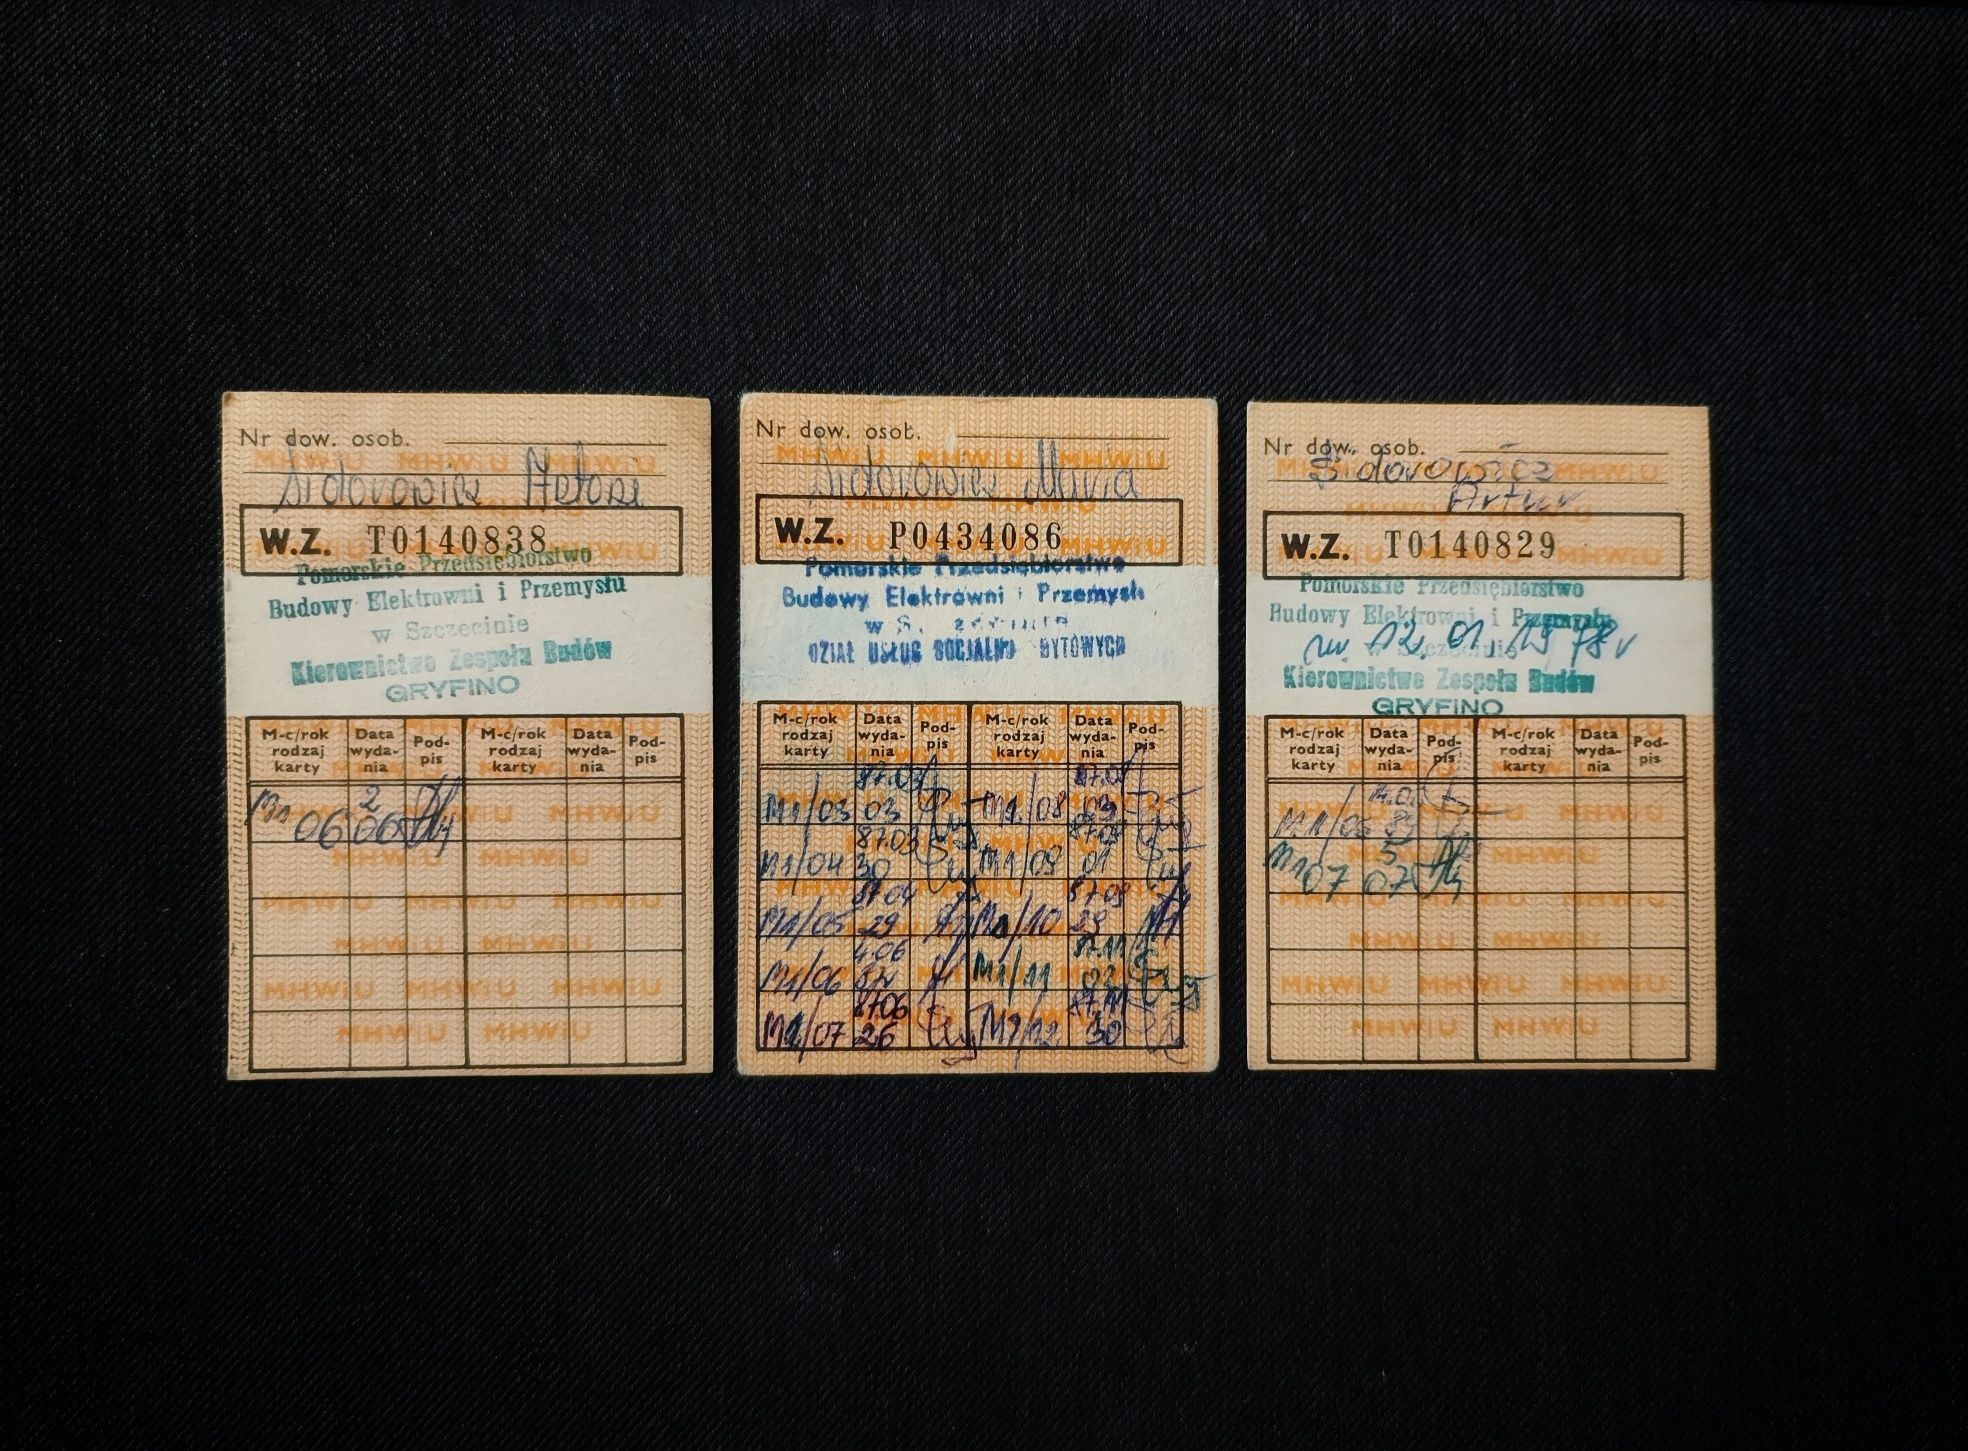 Nr dow. osob.
Sidorowicz Antoni
W.Z. T0140838
Pomorskie Przedsiębiorstwo
Budowy Elektrowni i Przemysłu
w Szczecinie
Kierownictwo Zespołu Budów
GRYFINO
M-c/rok rodzaj karty Data wyda- nia Pod- pis M-c/rok rodzaj karty Data wyda- nia Pod- pis
M1 06 2 06
MHWiU MHWiU MHWiU
Nr dow. osob.
Sidorowicz Maria
W.Z. P0434086
Pomorskie Przedsiębiorstwo
Budowy Elektrowni i Przemysłu
DZIAŁ USŁUG SOCJALNO BYTOWYCH
M-c/rok rodzaj karty Data wyda- nia Pod- pis M-c/rok rodzaj karty Data wyda- nia Pod- pis
M1/03 87.03 03 M1/08 03
M1/04 87.03 30 M1/09 01
M1/05 87.04 29 M1/10 87.09 29
M1/06 4.06 87r M1/11 87.11 02
M1/07 87.06 26 M1/12 87.11 30
Nr dow. osob.
Sidorowicz
Artur
W.Z. T0140829
Pomorskie Przedsiębiorstwo
Budowy Elektrowni i Przemysłu
ur. 12.01.1978r
w Szczecinie
Kierownictwo Zespołu Budów
GRYFINO
M-c/rok rodzaj karty Data wyda- nia Pod- pis M-c/rok rodzaj karty Data wyda- nia Pod- pis
M1/06
M1 07 5 07
MHWiU MHWiU MHWiU